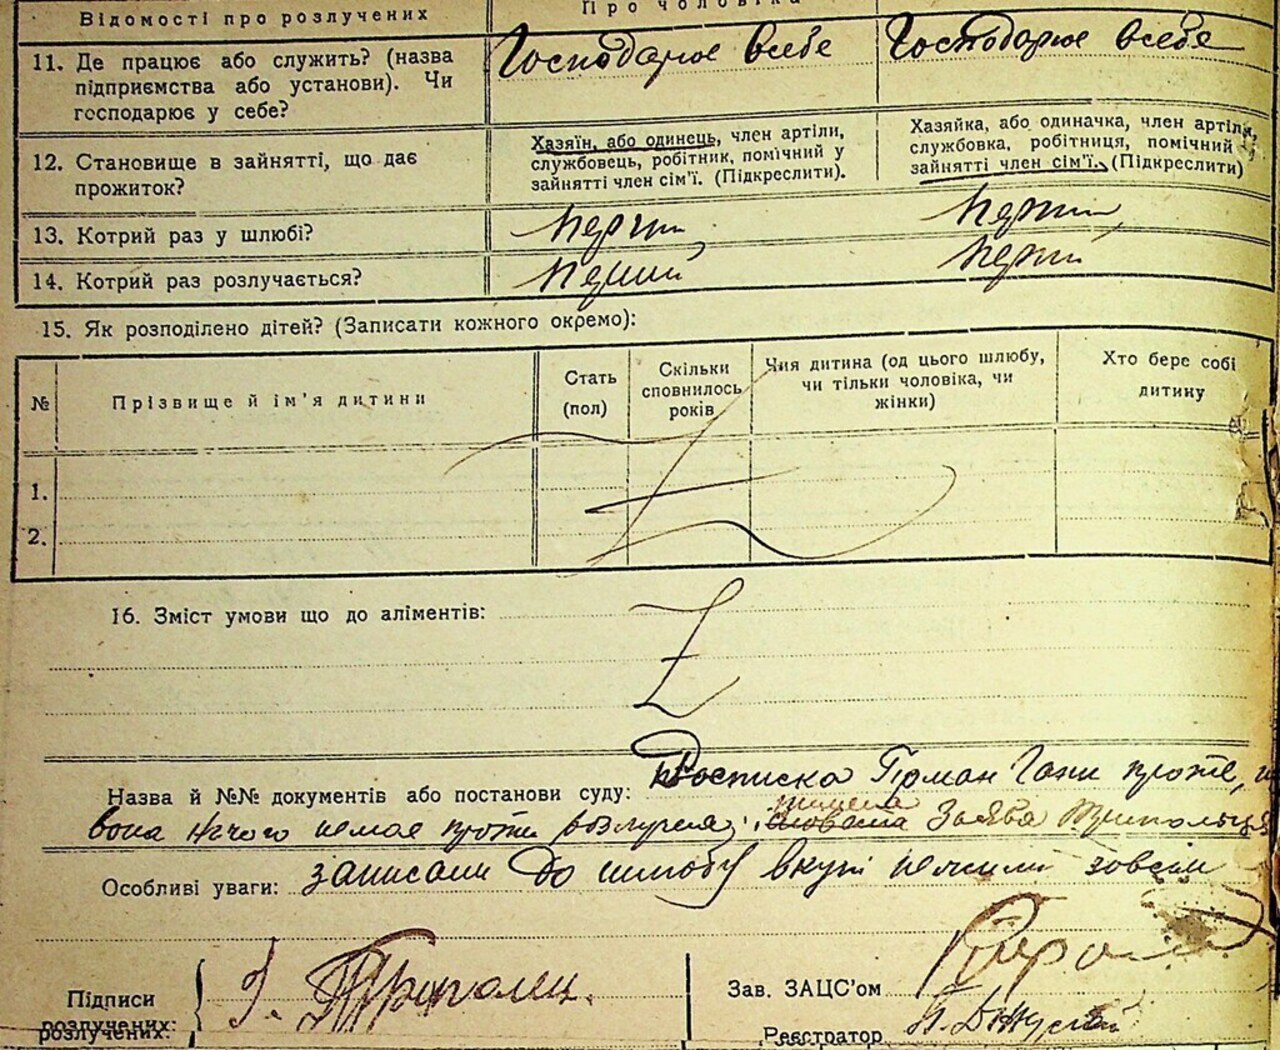 Відомості про розлучених
Про чоловіка
11. Де працює або служить? (назва підприємства або установи). Чи господарює у себе?
Господарює всебе
Господарює всебе
12. Становище в зайнятті, що дає прожиток?
Хазяїн, або одинець, член артіли, службовець, робітник, помічний у зайнятті член сім'ї. (Підкреслити).
Хазяйка, або одиначка, член артіли, службовка, робітниця, помічний у зайнятті член сім'ї. (Підкреслити)
13. Котрий раз у шлюбі?
14. Котрий раз розлучається?
перший
15. Як розподілено дітей? (Записати кожного окремо):
№
Прізвище й ім'я дитини
Стать (пол)
Скільки сповнилось років
Чия дитина (од цього шлюбу, чи тільки чоловіка, чи жінки)
Хто бере собі дитину
1.
2.
16. Зміст умови що до аліментів:
Z
Назва й №№ документів або постанови суду: Росписка Гірман Гані проте,
вона нічого немає проти розлучення; Заява
Особливі уваги: записани до шлюбу вкупі нежили зовсім
Підписи розлучених:
розлучених:
Зав. ЗАЦС'ом
Реєстратор